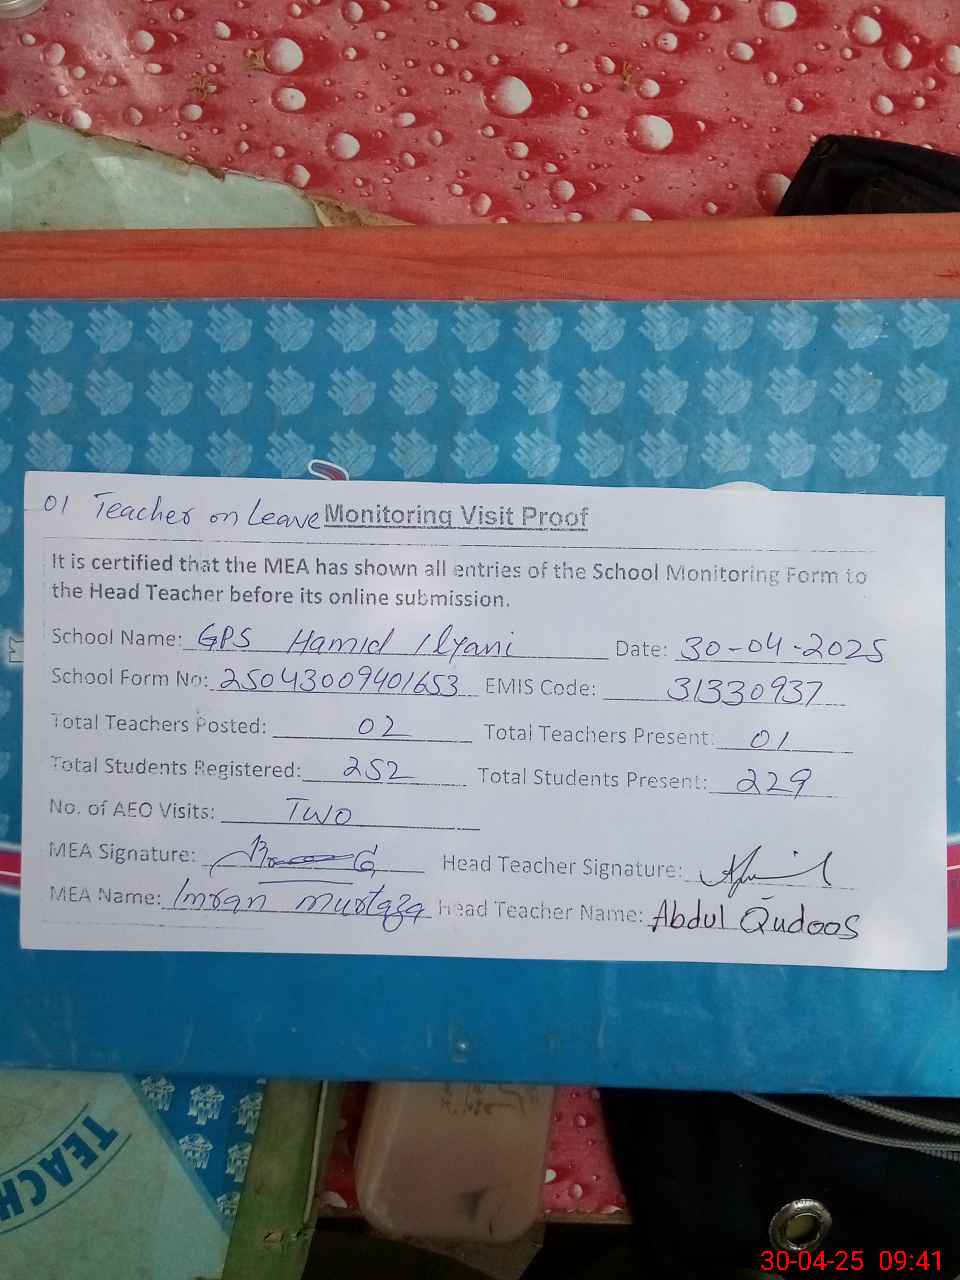 01 Teacher on Leave Monitoring Visit Proof
It is certified that the MEA has shown all entries of the School Monitoring Form to
the Head Teacher before its online submission.
School Name: GPS Hamid Ilyani Date: 30-04-2025
School Form No: 25043009401653 EMIS Code: 31330937
Total Teachers Posted: 02 Total Teachers Present: 01
Total Students Registered: 252 Total Students Present: 229
No. of AEO Visits: Two
MEA Signature: Head Teacher Signature:
MEA Name: Imran Murtaza Head Teacher Name: Abdul Qudoos
TEACH
30-04-25 09:41